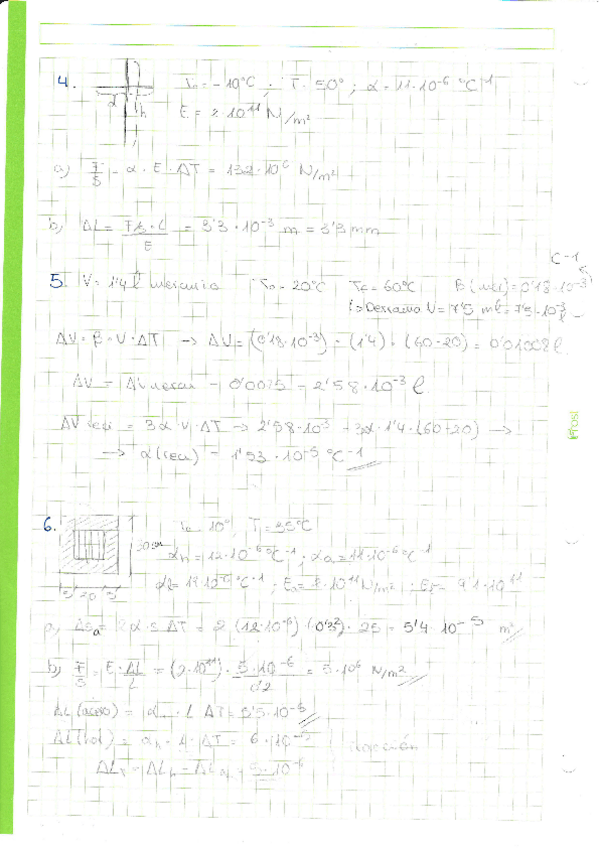 4. T₀ = -10°C ; T = 50° ; α = 11·10⁻⁶ °C⁻¹
α h E = 2·10¹¹ N/m²
a) F/S = α · E · ΔT = 132·10⁶ N/m²
b) ΔL = F/S · L / E = 3'3·10⁻³ m = 3'3 mm
5. V = 1'4 l mercurio T₀ = 20°C Tf = 60°C β (mer) = 0'18·10⁻³ °C⁻¹
Derramo V = 7'5 ml = 7'5·10⁻³ l
ΔV = β · V · ΔT → ΔV = (0'18·10⁻³) · (1'4) · (60-20) = 0'01008 l.
ΔV = ΔV mercu - 0'0075 = 2'58·10⁻³ l.
ΔV reci = 3α · V · ΔT → 2'58·10⁻³ = 3α · 1'4 · (60-20) →
→ α (reci) = 1'53·10⁻⁵ °C⁻¹
6. T₀ = 10°, T = 35°C
30 cm
αh = 12·10⁻⁶ °C⁻¹ ; αa = 11·10⁻⁶ °C⁻¹
5 20 5
Ea = 2·10¹¹ N/m²
a) ΔSa = 2 α · S · ΔT = 2 (12·10⁻⁶) (0'3²) · 25 = 5'4·10⁻⁵ m²
b) F/S = E · ΔL/L = (2·10¹¹) · 5·10⁻⁶/0'2 = 5·10⁶ N/m²
ΔL (acero) = α · L · ΔT = 5'5·10⁻⁵
ΔL = αh · L · ΔT = 6·10⁻⁵